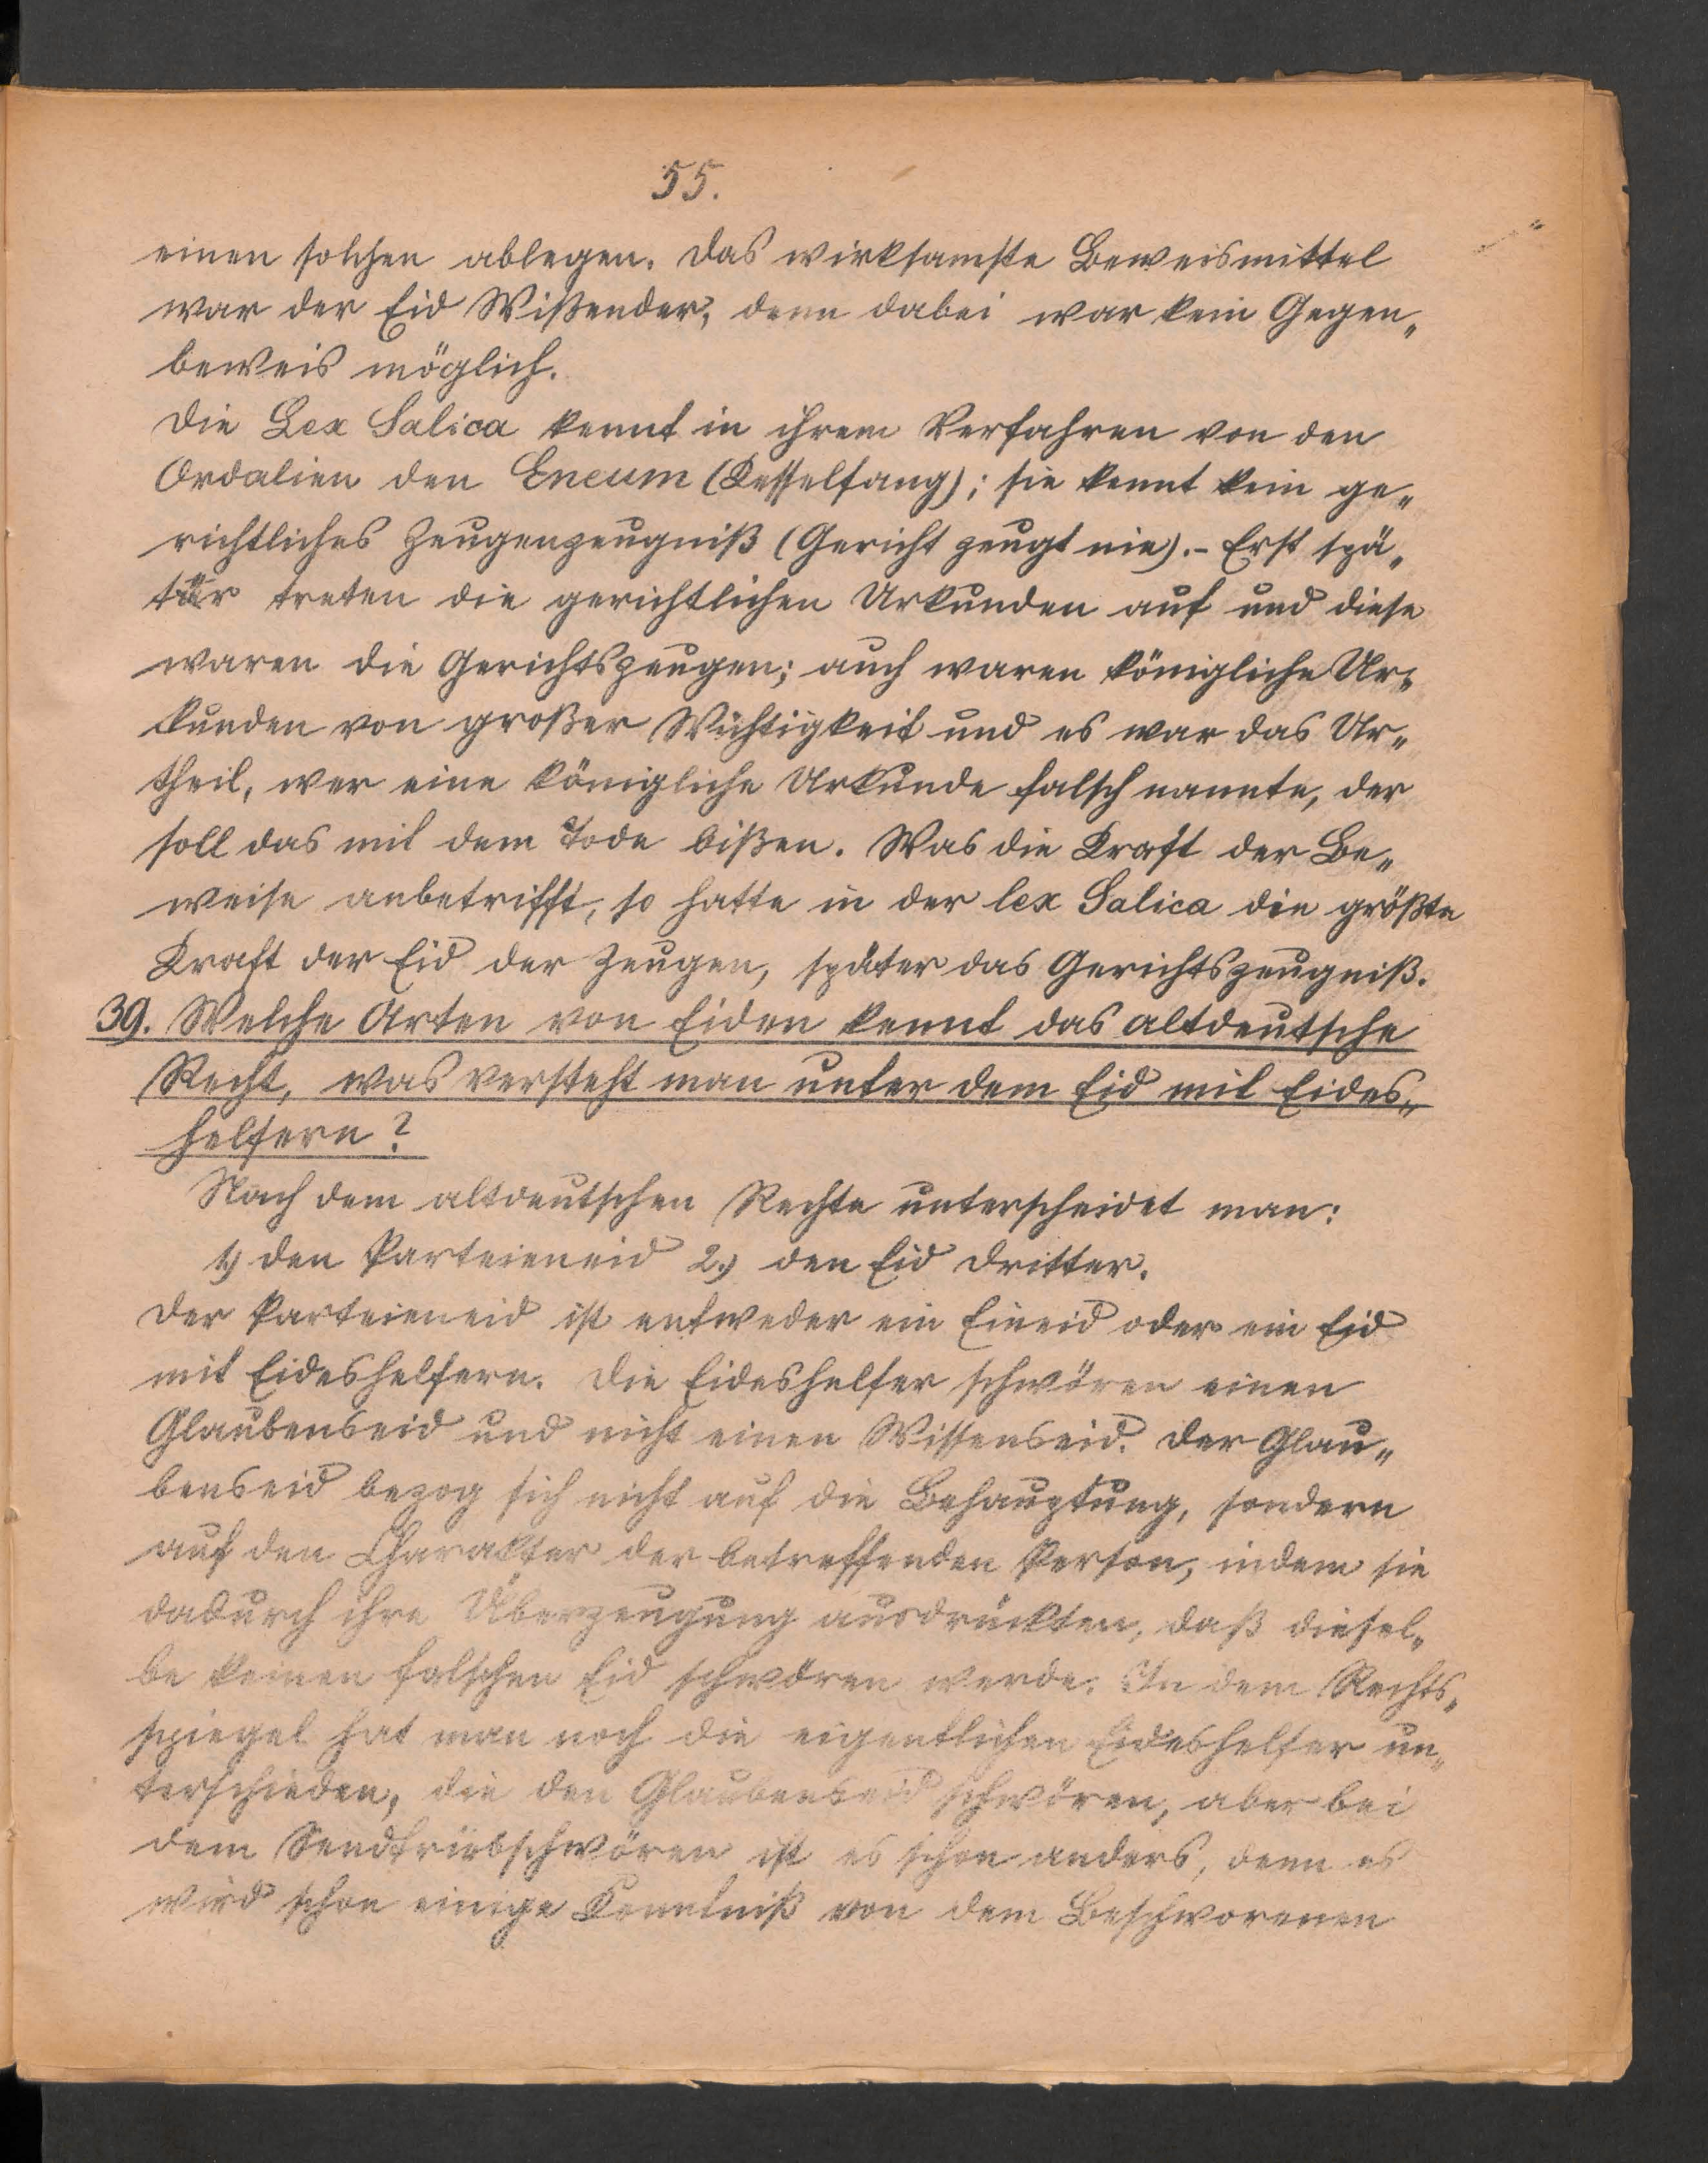 55.
einen solchen ablegen. Das wirksamste Beweismittel
war der Eid Wißender, denn dabei war kein Gegen„
beweis möglich.
Die Lex Salica kennt in ihrem Verfahren von den
Ordalien den Eneum (Kesselfang); sie kennt kein ge„
richtliches Zeugenzeugniß (Gericht zeugt nie).- Erst spä„
ter treten die gerichtlichen Urkunden auf und diese
waren die Gerichtszeugen; auch waren königliche Ur„
kunden von großer Wichtigkeit und es war das Ur„
theil, wer eine königliche Urkunde falsch nannte, der
soll das mit dem Tode bißen. Was die Kraft der Be„
weise anbetrifft, so hatte in der lex Salica die größte
Kraft der Eid der Zeugen, später das Gerichtszeugniß.
39. Welche Arten von Eiden kennt das altdeutsche
Recht, was versteht man unter dem Eid mit Eides„
helfern?
Nach dem altdeutschen Rechte unterscheidet man:
1.) den Parteieneid 2.) den Eid Dritter.
Der Parteieneid ist entweder ein Eineid oder ein Eid
mit Eideshelfern. Die Eideshelfer schwören einen
Glaubenseid und nicht einen Wissenseid. Der Glau„
benseid bezog sich nicht auf die Behauptung, sondern
auf den Charakter der betreffenden Person, indem sie
dadurch ihre Überzeugung ausdrückten, daß diesel„
be keinen falschen Eid schwören werde. In dem Rechts„
spiegel hat man noch die eigentlichen Eideshelfer un„
terschieden, die den Glaubenseid schwören, aber bei
dem ist es schon anders, denn es
wird schon einige Kenntniß von dem Beschworenen